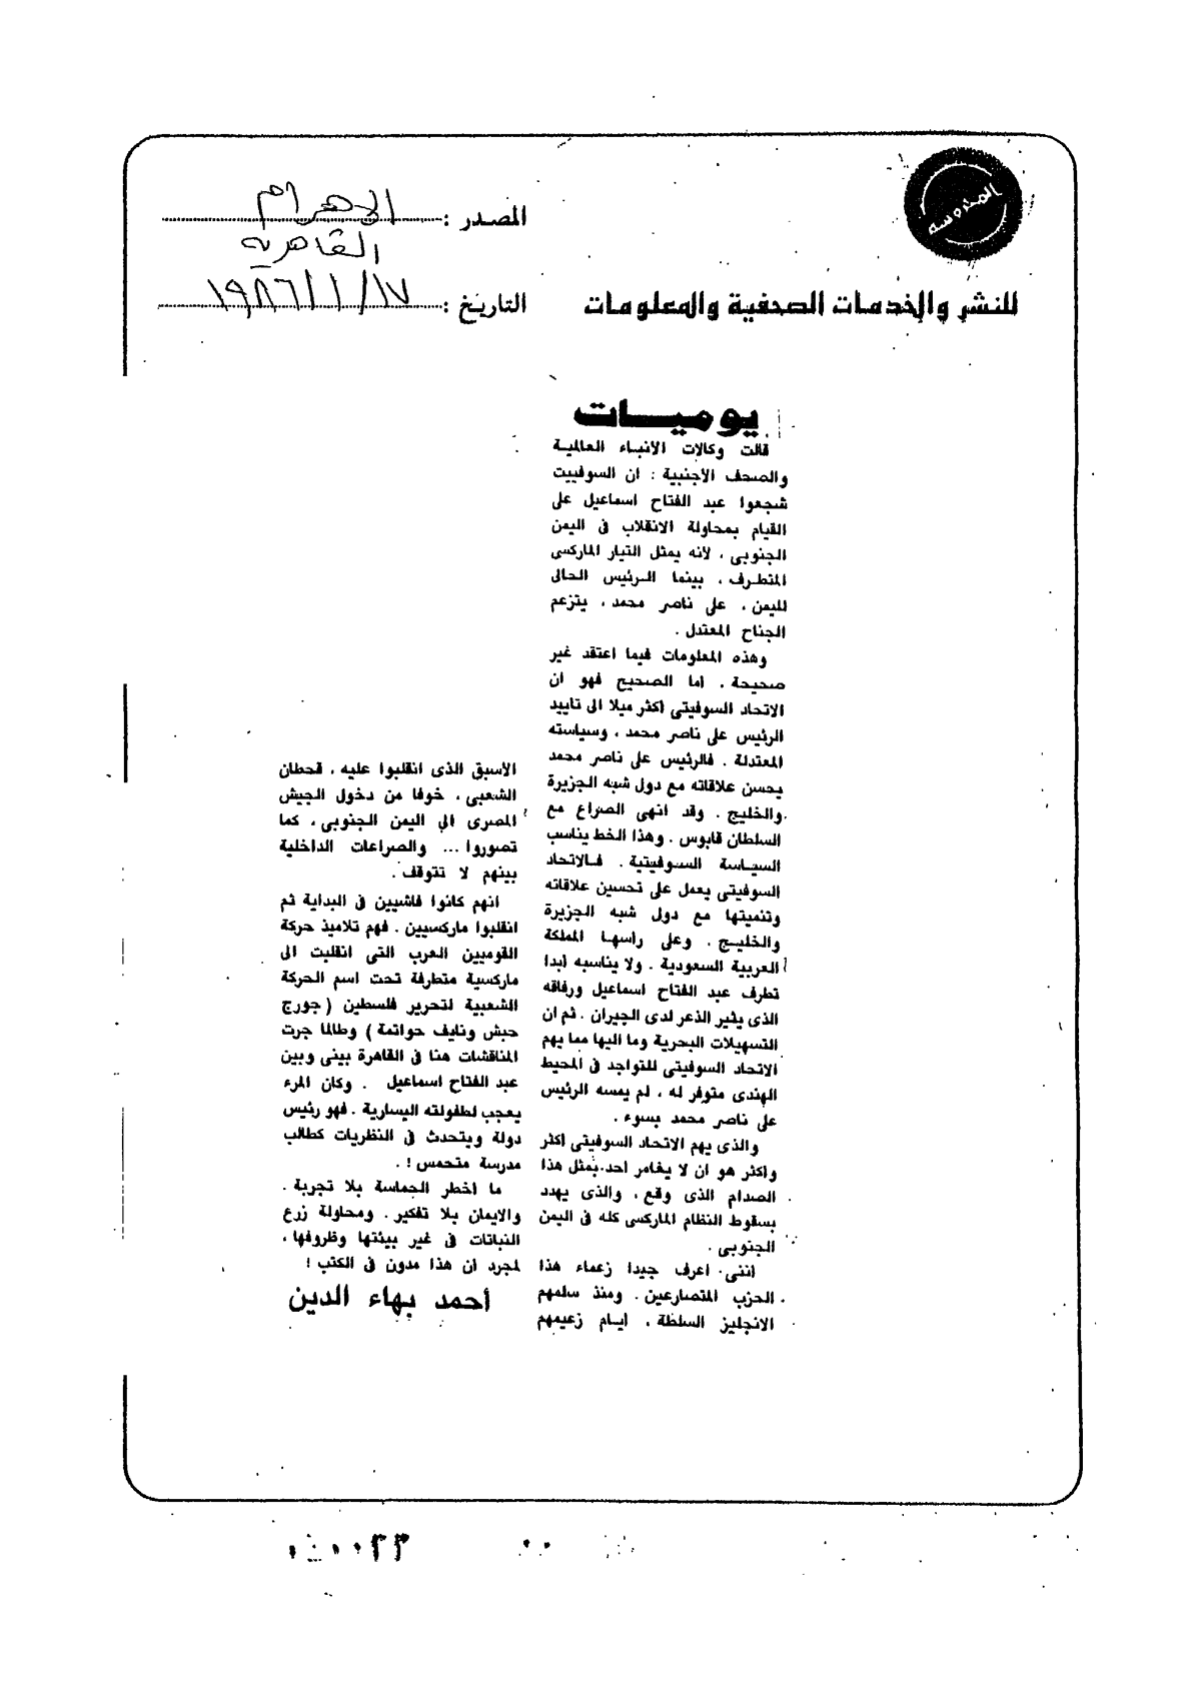 المحروسة
للنشر والخدمات الصحفية والمعلومات
المصدر : الاهرام
القاهرية
التاريخ : ١٩٨٦/١/١٧
يوميات
قالت وكالات الانباء العالمية
والصحف الأجنبية : ان السوفييت
شجعوا عبد الفتاح اسماعيل على
القيام بمحاولة الانقلاب فى اليمن
الجنوبى ، لانه يمثل التيار الماركسى
المتطرف ، بينما الرئيس الحالى
لليمن ، على ناصر محمد ، يتزعم
الجناح المعتدل .
وهذه المعلومات فيما اعتقد غير
صحيحة . اما الصحيح فهو ان
الاتحاد السوفيتى اكثر ميلا الى تاييد
الرئيس على ناصر محمد ، وسياسته
المعتدلة . فالرئيس على ناصر محمد
يحسن علاقاته مع دول شبه الجزيرة
والخليج . وقد انهى الصراع مع
السلطان قابوس . وهذا الخط يناسب
السياسة السوفيتية . فالاتحاد
السوفيتى يعمل على تحسين علاقاته
وتنميتها مع دول شبه الجزيرة
والخليج . وعلى راسها المملكة
العربية السعودية . ولا يناسبه ابدا
تطرف عبد الفتاح اسماعيل ورفاقه
الذى يثير الذعر لدى الجيران . ثم ان
التسهيلات البحرية وما اليها مما يهم
الاتحاد السوفيتى للتواجد فى المحيط
الهندى متوفر له ، لم يمسه الرئيس
على ناصر محمد بسوء .
والذى يهم الاتحاد السوفيتى اكثر
واكثر هو ان لا يغامر احد بمثل هذا
الصدام الذى وقع ، والذى يهدد
بسقوط النظام الماركسى كله فى اليمن
الجنوبى .
اننى اعرف جيدا زعماء هذا
الحزب المتصارعين . ومنذ سلمهم
الانجليز السلطة ، ايام زعيمهم
الأسبق الذى انقلبوا عليه ، قحطان
الشعبى ، خوفا من دخول الجيش
المصرى الى اليمن الجنوبى ، كما
تصوروا ... والصراعات الداخلية
بينهم لا تتوقف .
انهم كانوا فاشيين فى البداية ثم
انقلبوا ماركسيين . فهم تلاميذ حركة
القوميين العرب التى انقلبت الى
ماركسية متطرفة تحت اسم الحركة
الشعبية لتحرير فلسطين ( جورج
حبش ونايف حواتمة ) وطالما جرت
المناقشات هنا فى القاهرة بينى وبين
عبد الفتاح اسماعيل . وكان المرء
يعجب لطفولته اليسارية . فهو رئيس
دولة ويتحدث فى النظريات كطالب
مدرسة متحمس ! .
ما اخطر الحماسة بلا تجربة .
والايمان بلا تفكير . ومحاولة زرع
النباتات فى غير بيئتها وظروفها ،
لمجرد ان هذا مدون فى الكتب !
أحمد بهاء الدين